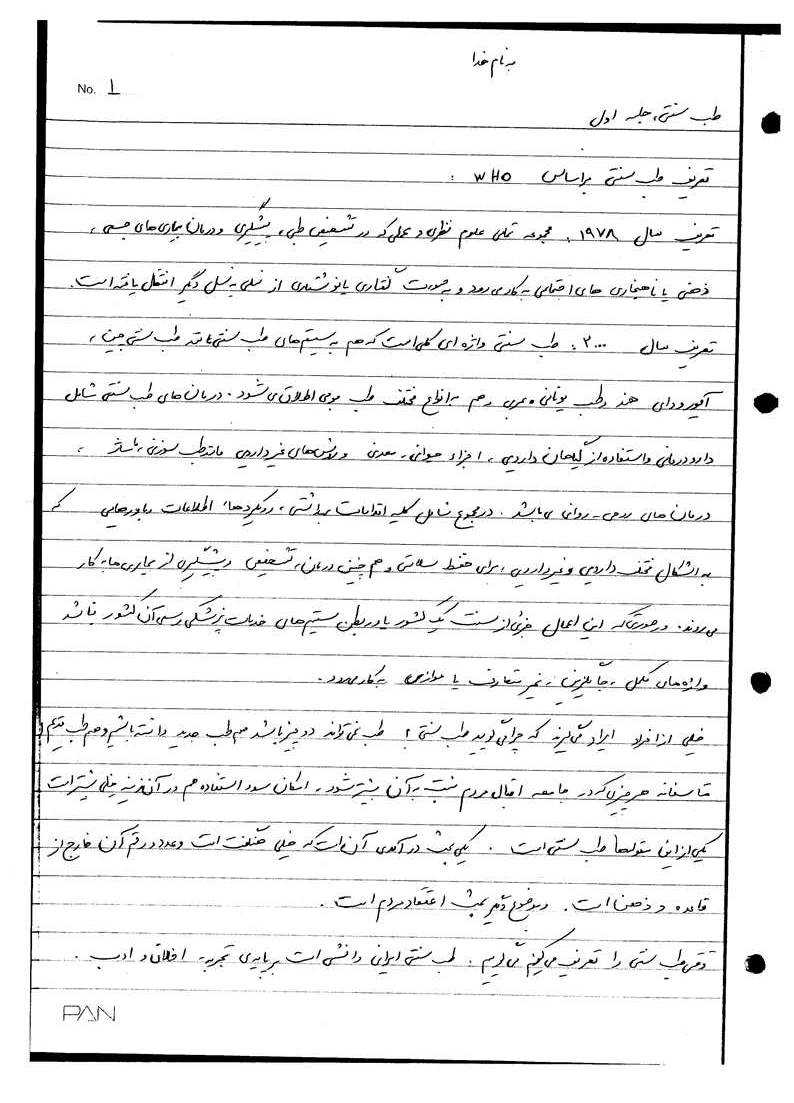 به نام خدا
No. 1
طب سنتی، جلسه اول
تعریف طب سنتی براساس WHO :
تعریف سال ۱۹۷۸ : مجموعه تمامی علوم نظری و عملی که در تشخیص طبی، پیشگیری و درمان بیماری‌های جسمی،
ذهنی یا ناهنجاری های اجتماعی به کار می رود و به صورت گفتاری یا نوشتاری از نسلی به نسل دیگر انتقال یافته است.
تعریف سال ۲۰۰۰ : طب سنتی واژه ای کلی است که هم به سیستم‌های طب سنتی مانند طب سنتی چین،
آیورودای هند و طب یونانی و عربی و هم به انواع مختلف طب بومی اطلاق می شود. درمان های طب سنتی شامل
دارو درمانی و استفاده از گیاهان دارویی، اجزاء حیوانی، معدنی و روش‌های غیردارویی مانند طب سوزنی، ماساژ،
درمان های روحی - روانی می باشد. در مجموع شامل کلیه اقدامات بهداشتی، رویکردها، اطلاعات و باورهایی که
به اشکال مختلف دارویی و غیردارویی، برای حفظ سلامتی و هم چنین درمان، تشخیص و پیشگیری از بیماری ها به کار
می روند. در صورتی که این اعمال جزئی از سنت یک کشور یا در بطن سیستم‌های خدمات پزشکی رسمی آن کشور نباشد
واژه های مکمل، جایگزین، غیر متعارف یا موازی به کار می رود.
خیلی از افراد ایراد می گیرند که چرا می گویید طب سنتی؟ طب نمی تواند دو چیز باشد هم طب جدید داشته باشیم و هم طب قدیم
متاسفانه هر چیزی که در جامعه اقبال مردم نسبت به آن بیشتر شود، امکان سوء استفاده هم در آن زمینه خیلی بیشتر است
یکی از این مقوله‌ها طب سنتی است. یکی بحث درآمدی آن است که خیلی هنگفت است و عدد و رقم آن خارج از
قاعده و ذهن است. و موضوع دیگر بحث اعتقاد مردم است.
وقتی طب سنتی را تعریف می کنیم می گوییم: طب سنتی ایرانی دانشی است بر پایه ی تجربه، اخلاق و ادب.
PAN